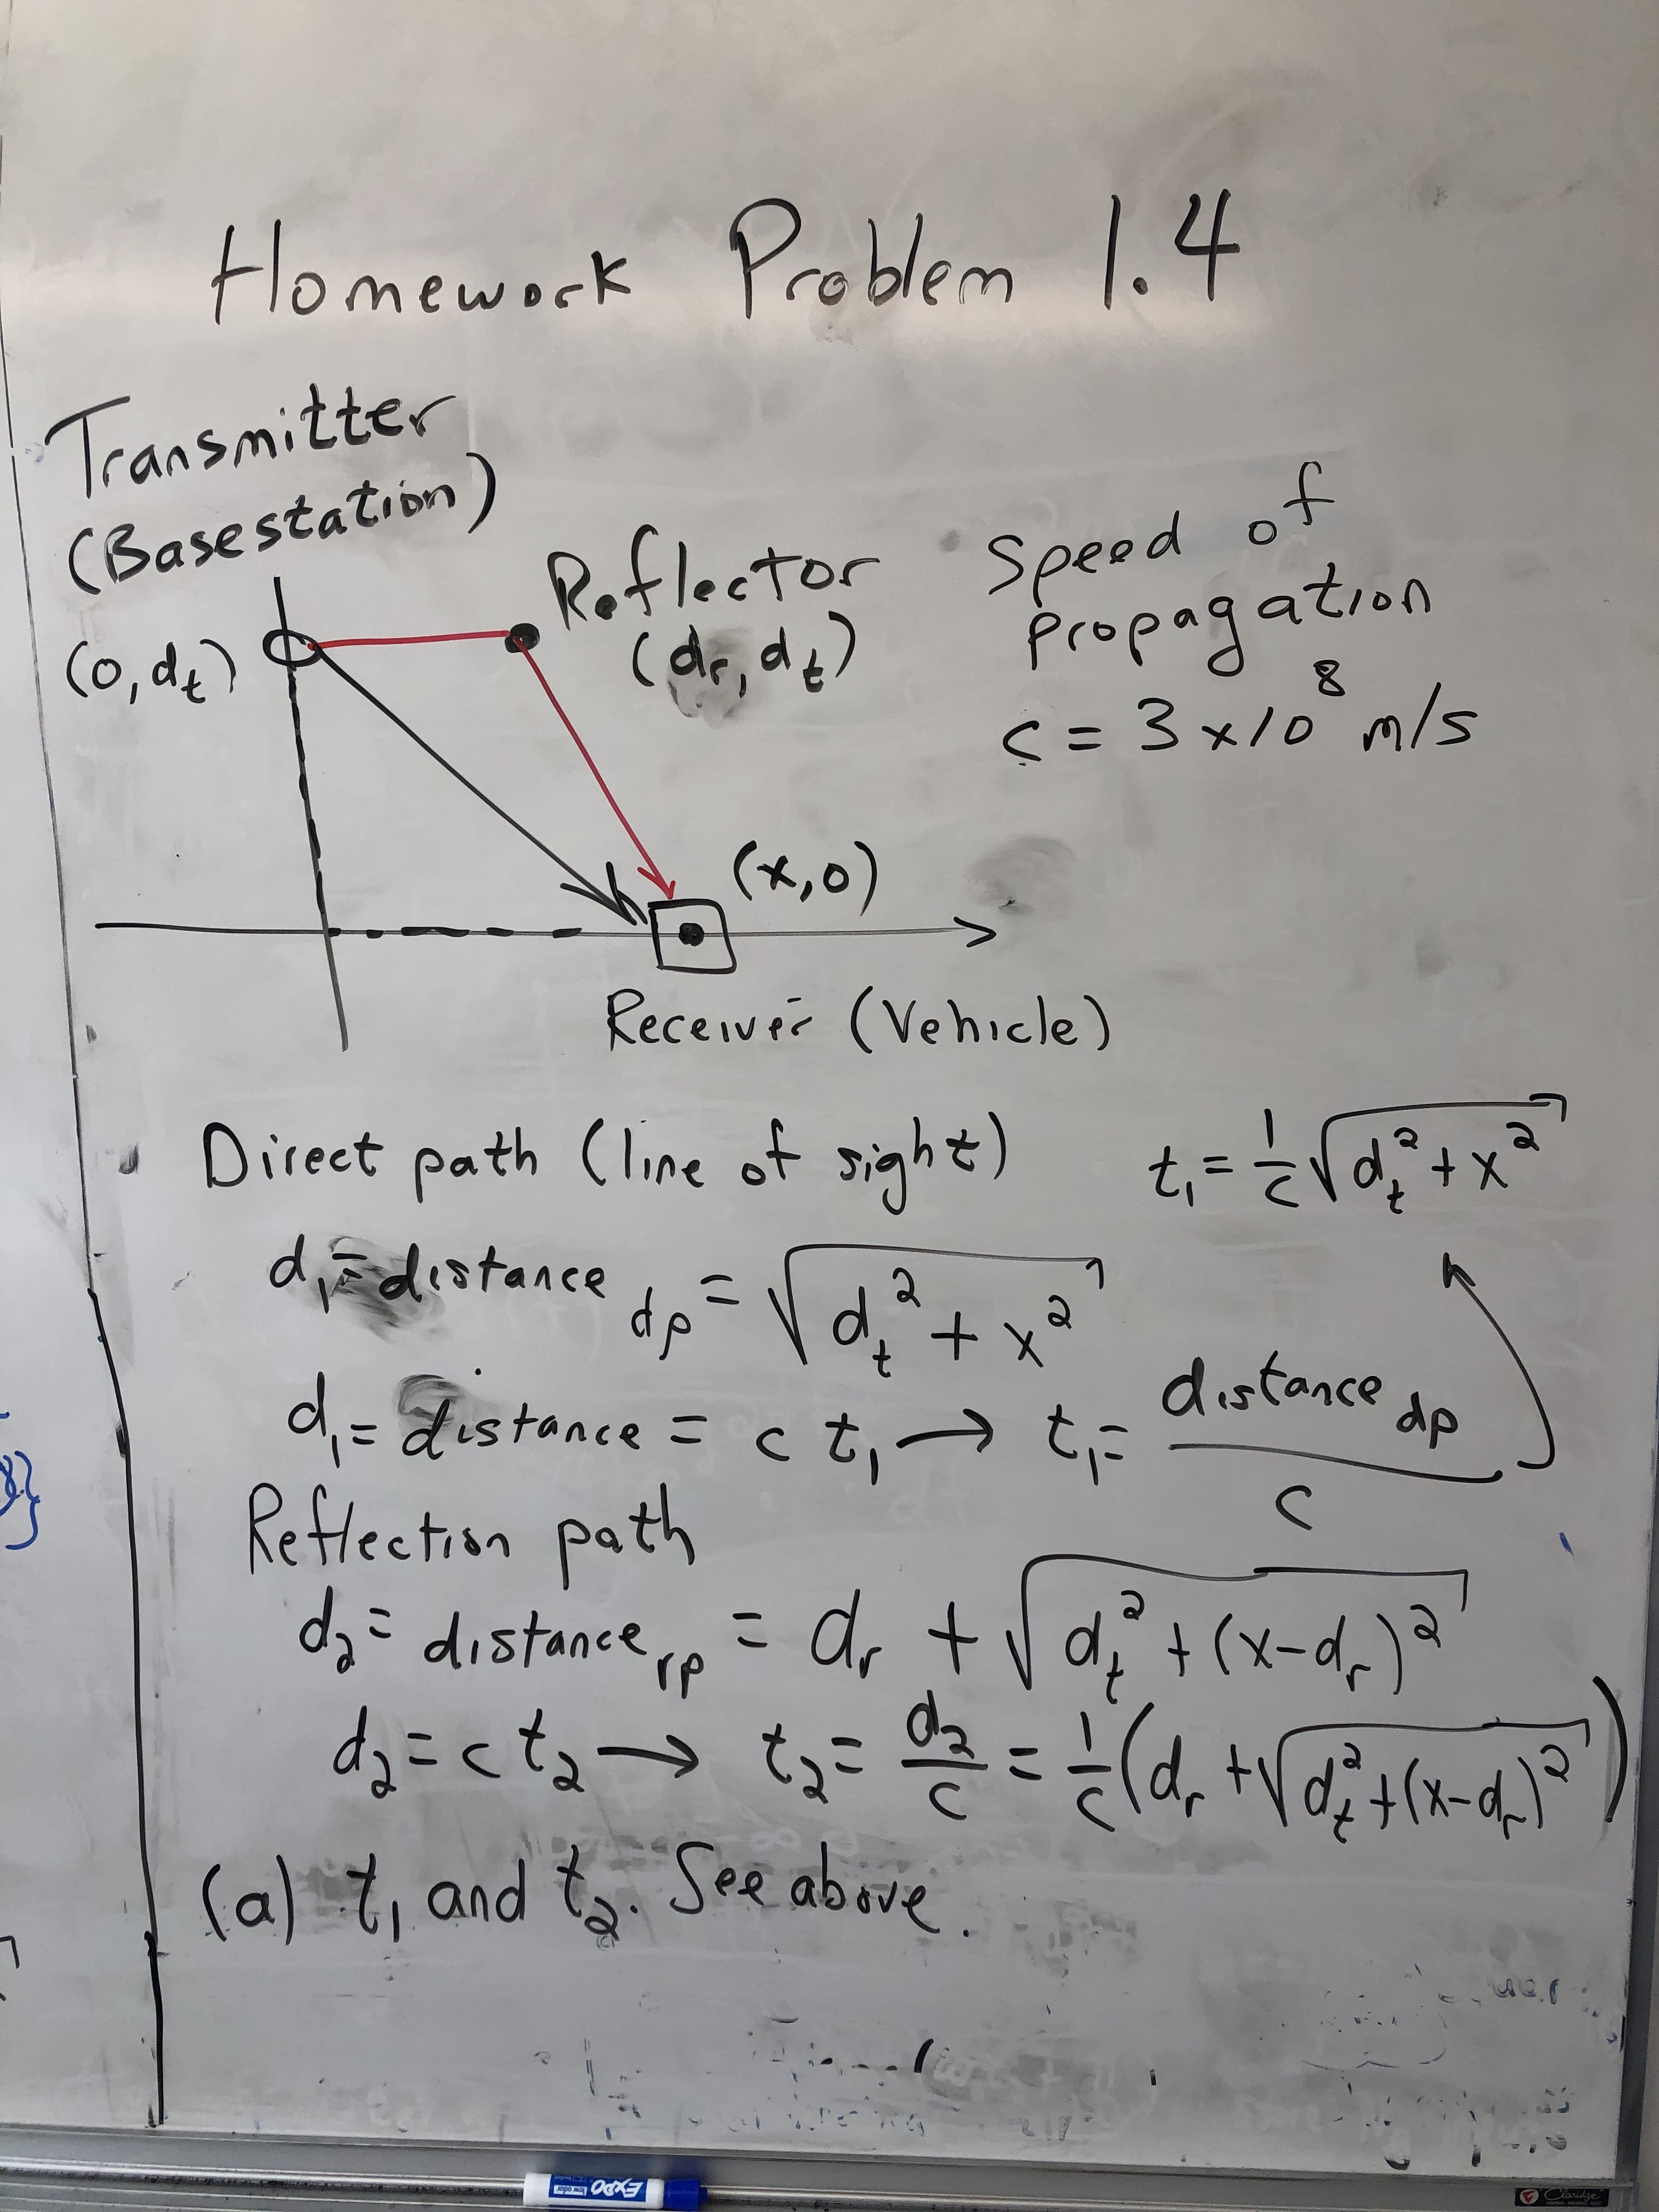 Homework Problem 1.4
Transmitter
(Basestation)
Reflector
(dᵣ, dₜ)
(0, dₜ)
Speed of
propagation
c = 3 x 10⁸ m/s
(x, 0)
Receiver (Vehicle)
Direct path (line of sight)
t₁ = 1/c √(dₜ² + x²)
d₁ = distance dp = √(dₜ² + x²)
d₁ = distance = c t₁ → t₁ = distance dp / c
Reflection path
d₂ = distance rp = dᵣ + √(dₜ² + (x-dᵣ)²)
d₂ = c t₂ → t₂ = d₂/c = 1/c (dᵣ + √(dₜ² + (x-dᵣ)²))
(a) t₁ and t₂. See above.
EXPO
low odor
Claridge